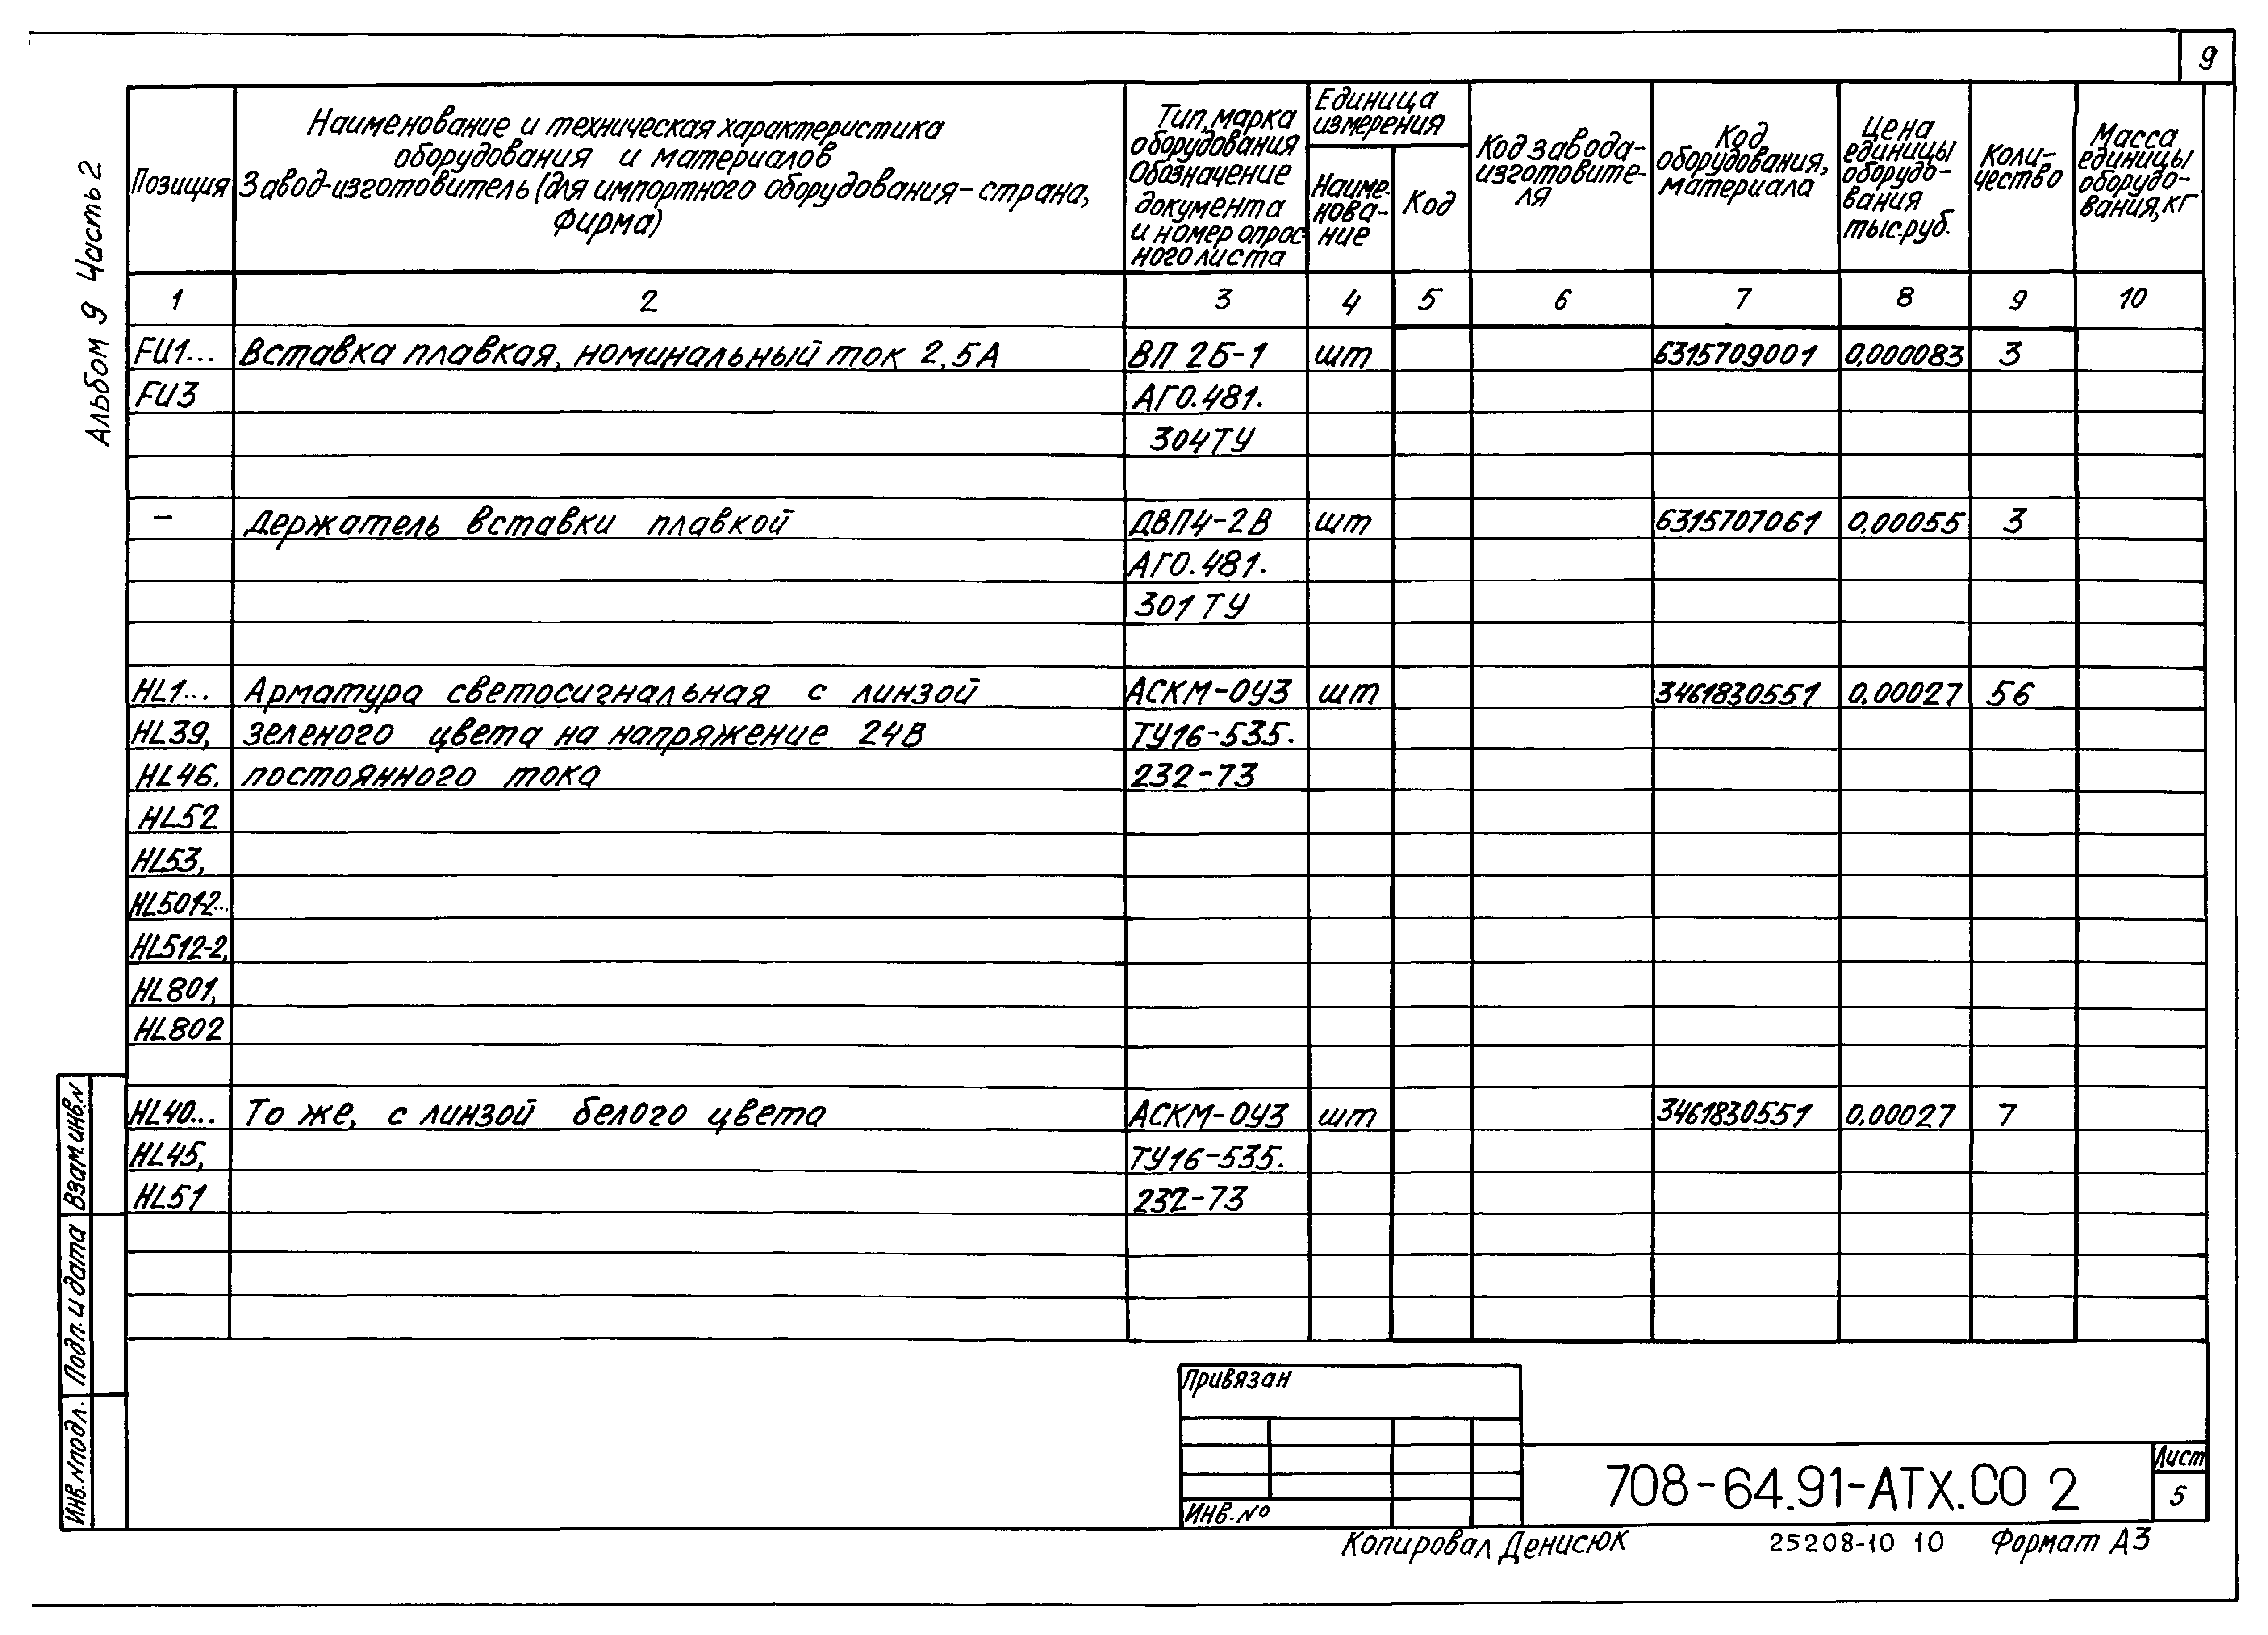 9
Альбом 9 Часть 2
Позиция
Наименование и техническая характеристика
оборудования и материалов
Завод-изготовитель (для импортного оборудования - страна,
фирма)
Тип, марка
оборудования
Обозначение
документа
и номер опрос-
ного листа
Единица
измерения
Наиме-
нова-
ние
Код
Код завода-
изготовите-
ля
Код
оборудования,
материала
Цена
единицы
оборудо-
вания
тыс.руб.
Коли-
чество
Масса
единицы
оборудо-
вания, кг
1 2 3 4 5 6 7 8 9 10
FU1... Вставка плавкая, номинальный ток 2,5А ВП 2Б-1 шт 6315709001 0,000083 3
FU3 АГО.481.
304ТУ
- Держатель вставки плавкой ДВП4-2В шт 6315707061 0,00055 3
АГО.481.
301 ТУ
HL1... Арматура светосигнальная с линзой АСКМ-ОУ3 шт 3461830551 0,00027 56
HL39, зеленого цвета на напряжение 24В ТУ16-535.
HL46. постоянного тока 232-73
HL52
HL53,
HL501-2...
HL512-2,
HL801,
HL802
HL40... То же, с линзой белого цвета АСКМ-ОУ3 шт 3461830551 0,00027 7
HL45, ТУ16-535.
HL51 232-73
Взам.инв.N
Подп. и дата
Инв.N подл.
Привязан
Инв.№
708-64.91-АТХ.СО 2
Лист
5
Копировал Денисюк 25208-10 10 Формат А3